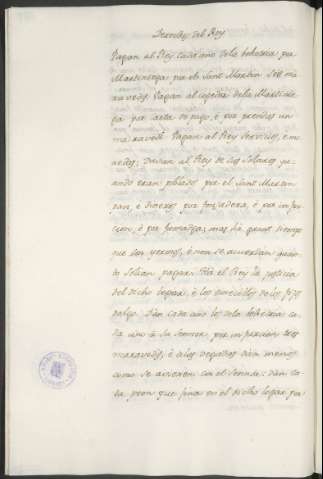 Derechos del Rey
Pagan al Rey cada año de la behetria por
Martiniega por el Sant Martin mara
vedis. Pagan al logar dela Martinie
ga por carta de pago, é por prendas un
maravedi. Pagan al Rey servicios, é mo
nedas; Davan al Rey de los Solares qu
ando eran poblados por el Sant Martin
pan, é dineros por fonsadera, é por infur
cion, é por fumadga; mas ha grant tiempo
que son yermos, é non se acuerdan quan
to solian pagar. Há el Rey la justicia
del dicho logar, é los omecillos de los fijos
dalgo. Dan cada año los dela behetria ca
da uno á su Sennor por infurcion tres
maravedis, é á los degaños dan menos
como se avienen con el Sennor: dan ca
da peon que finca en el dicho logar por